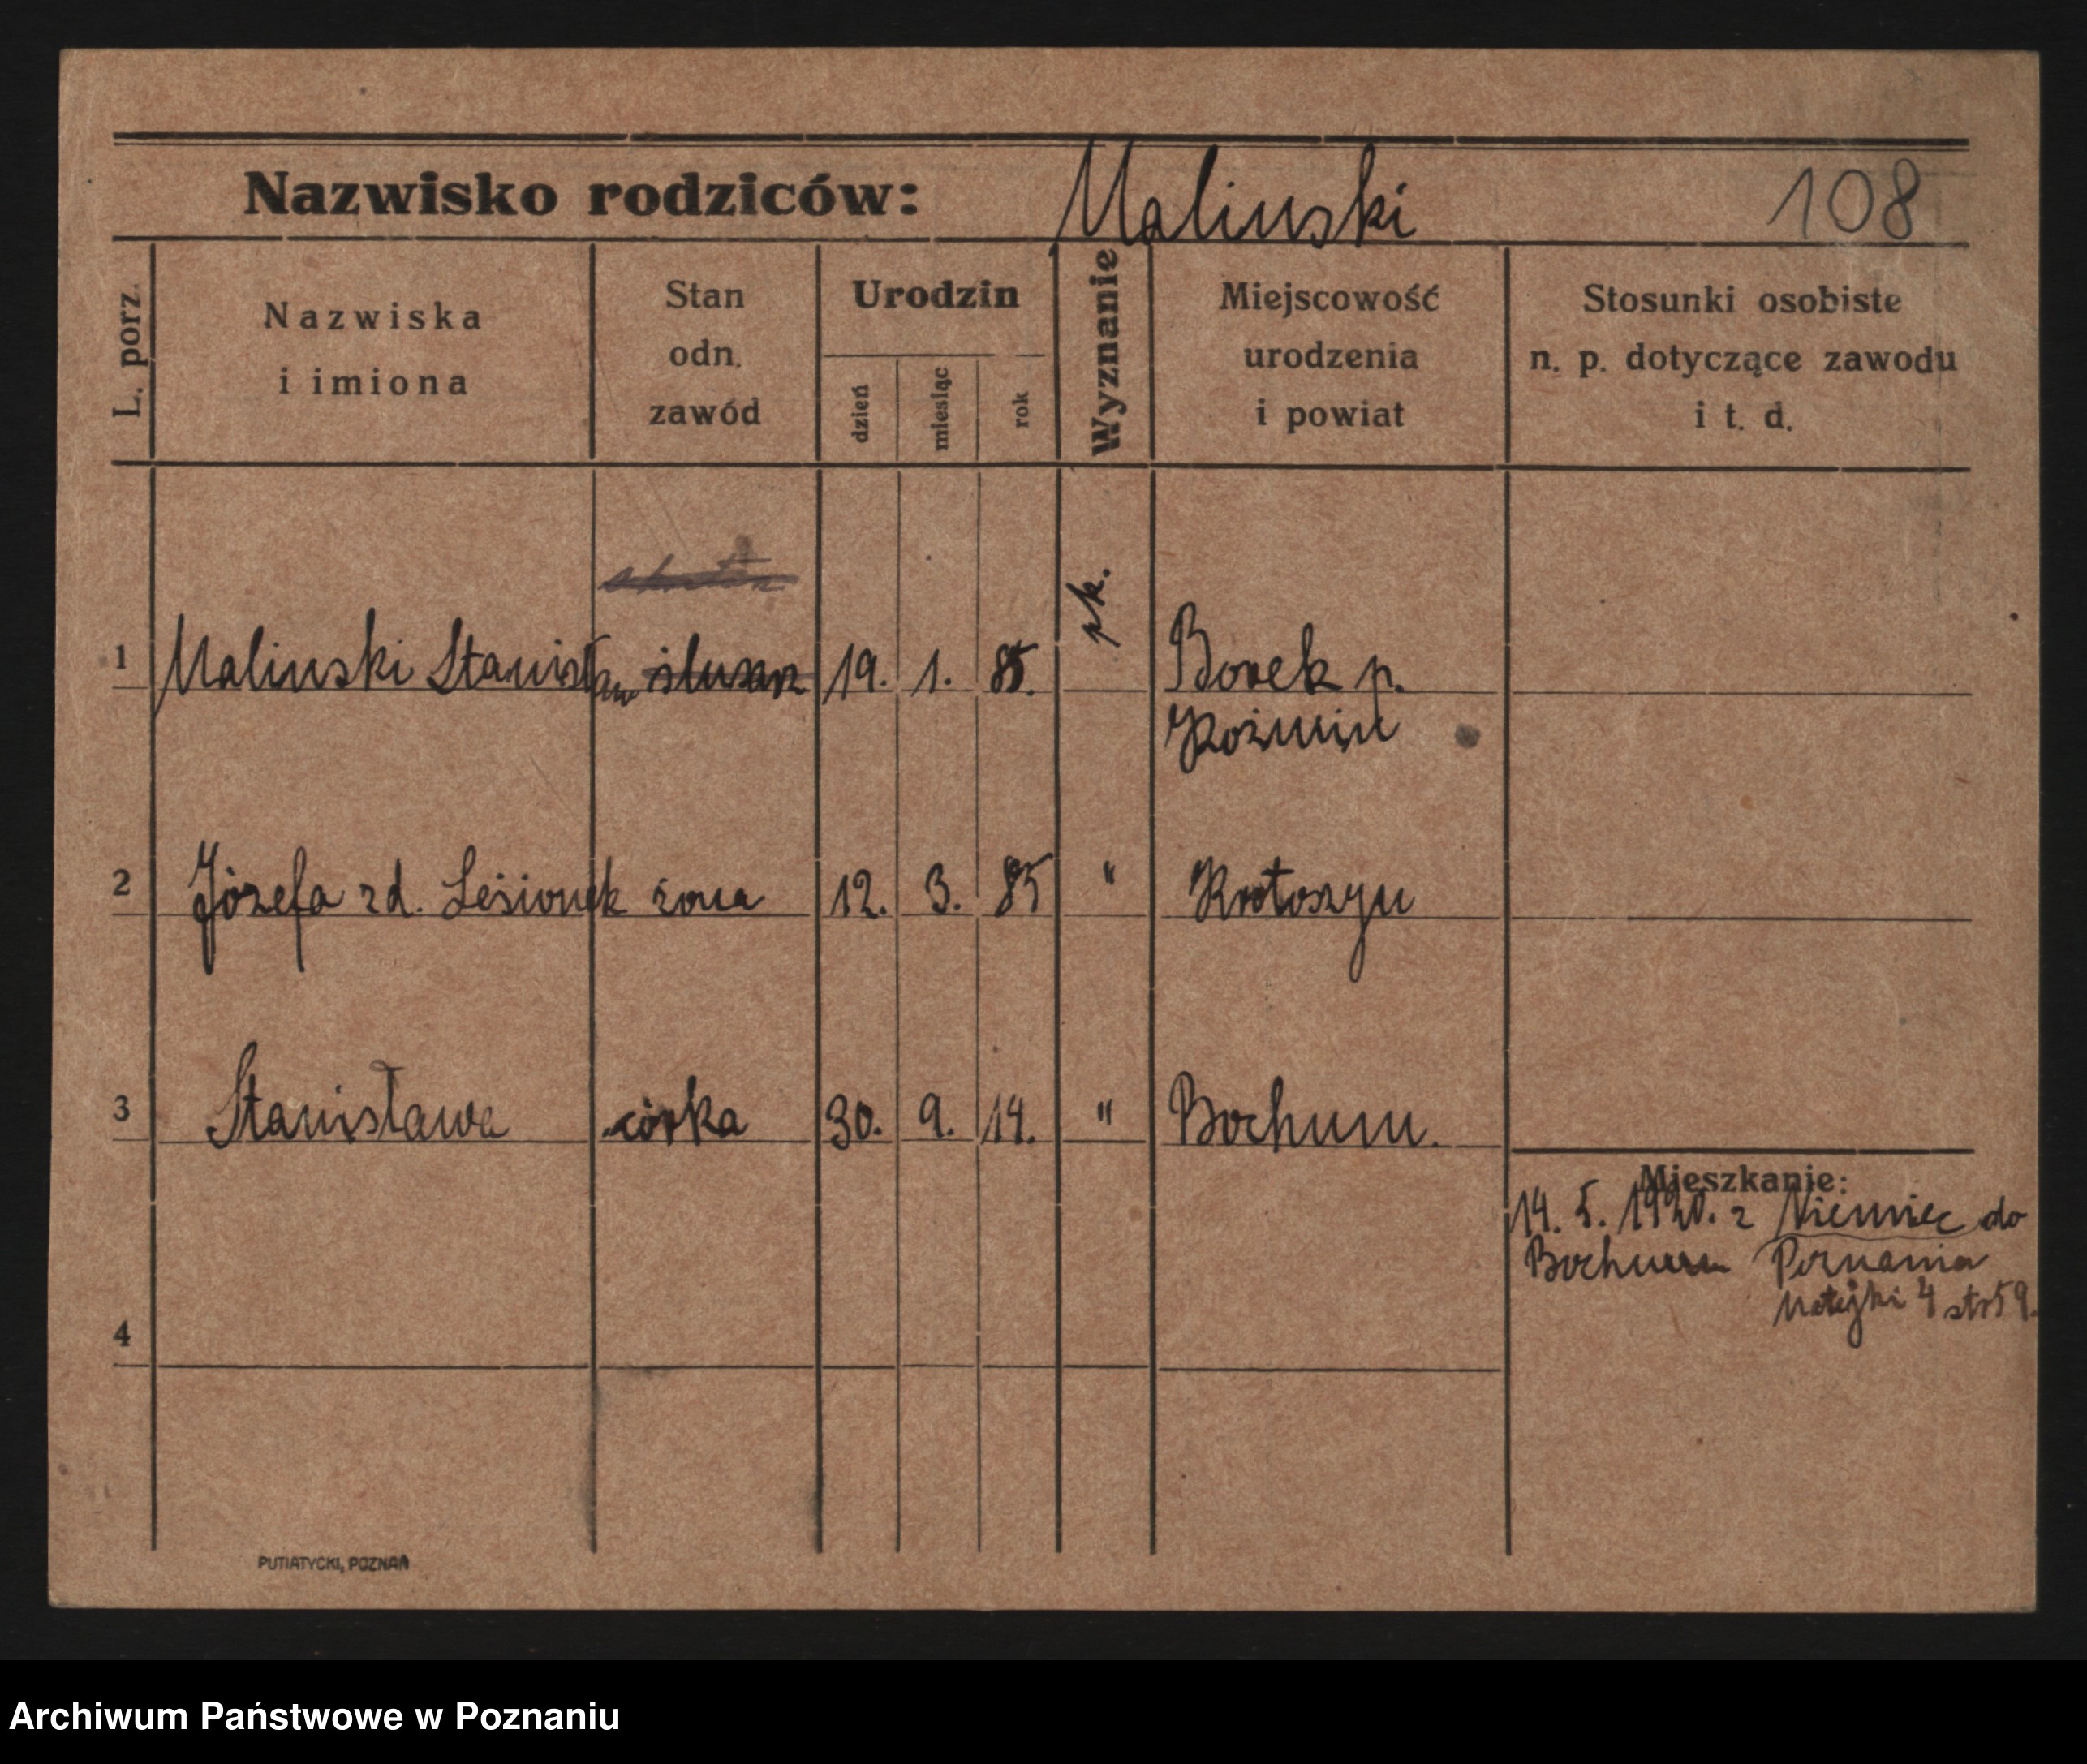 Nazwisko rodziców: Malinski 108
L. porz.
Nazwiska
i imiona
Stan
odn.
zawód
Urodzin
dzień
miesiąc
rok
Wyznanie
Miejscowość
urodzenia
i powiat
Stosunki osobiste
n. p. dotyczące zawodu
i t. d.
1 Malinski Stanisław ślusarz 19. 1. 85. rk. Borek p.
Koźmin
2 Józefa zd. Lesionek żona 12. 3. 85 " Krotoszyn
3 Stanisława córka 30. 9. 14. " Bochum.
Mieszkanie:
14. 5. 1920. z Niemiec do
Bochum Poznania
Matejki 4 str 59.
4
PUTIATYCKI, POZNAŃ
Archiwum Państwowe w Poznaniu